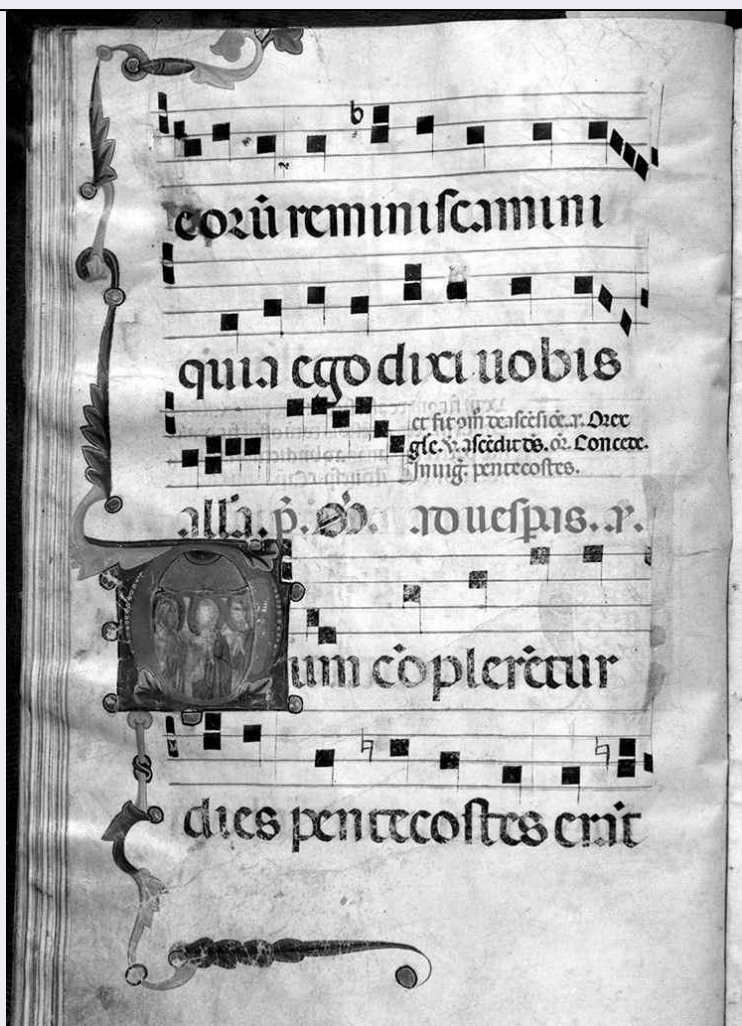 eoꝛū reminiſcamini
quia ego dixi uobis
et fit oꝛ̄o
gl̄e. ℣. aſcēdit dē⁹. oꝛ̄. Concede.
In uig. pentecostes.
all̄a. p̄. ad ueſp̄as. ꝶ.
um cōplerētur
dies pentecoſtes erāt